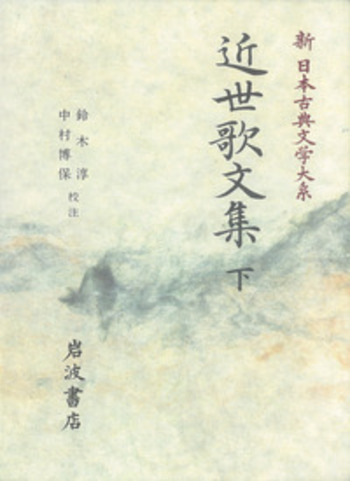 新 日本古典文学大系
近世歌文集 下
鈴木淳
中村博保
校注
岩波書店